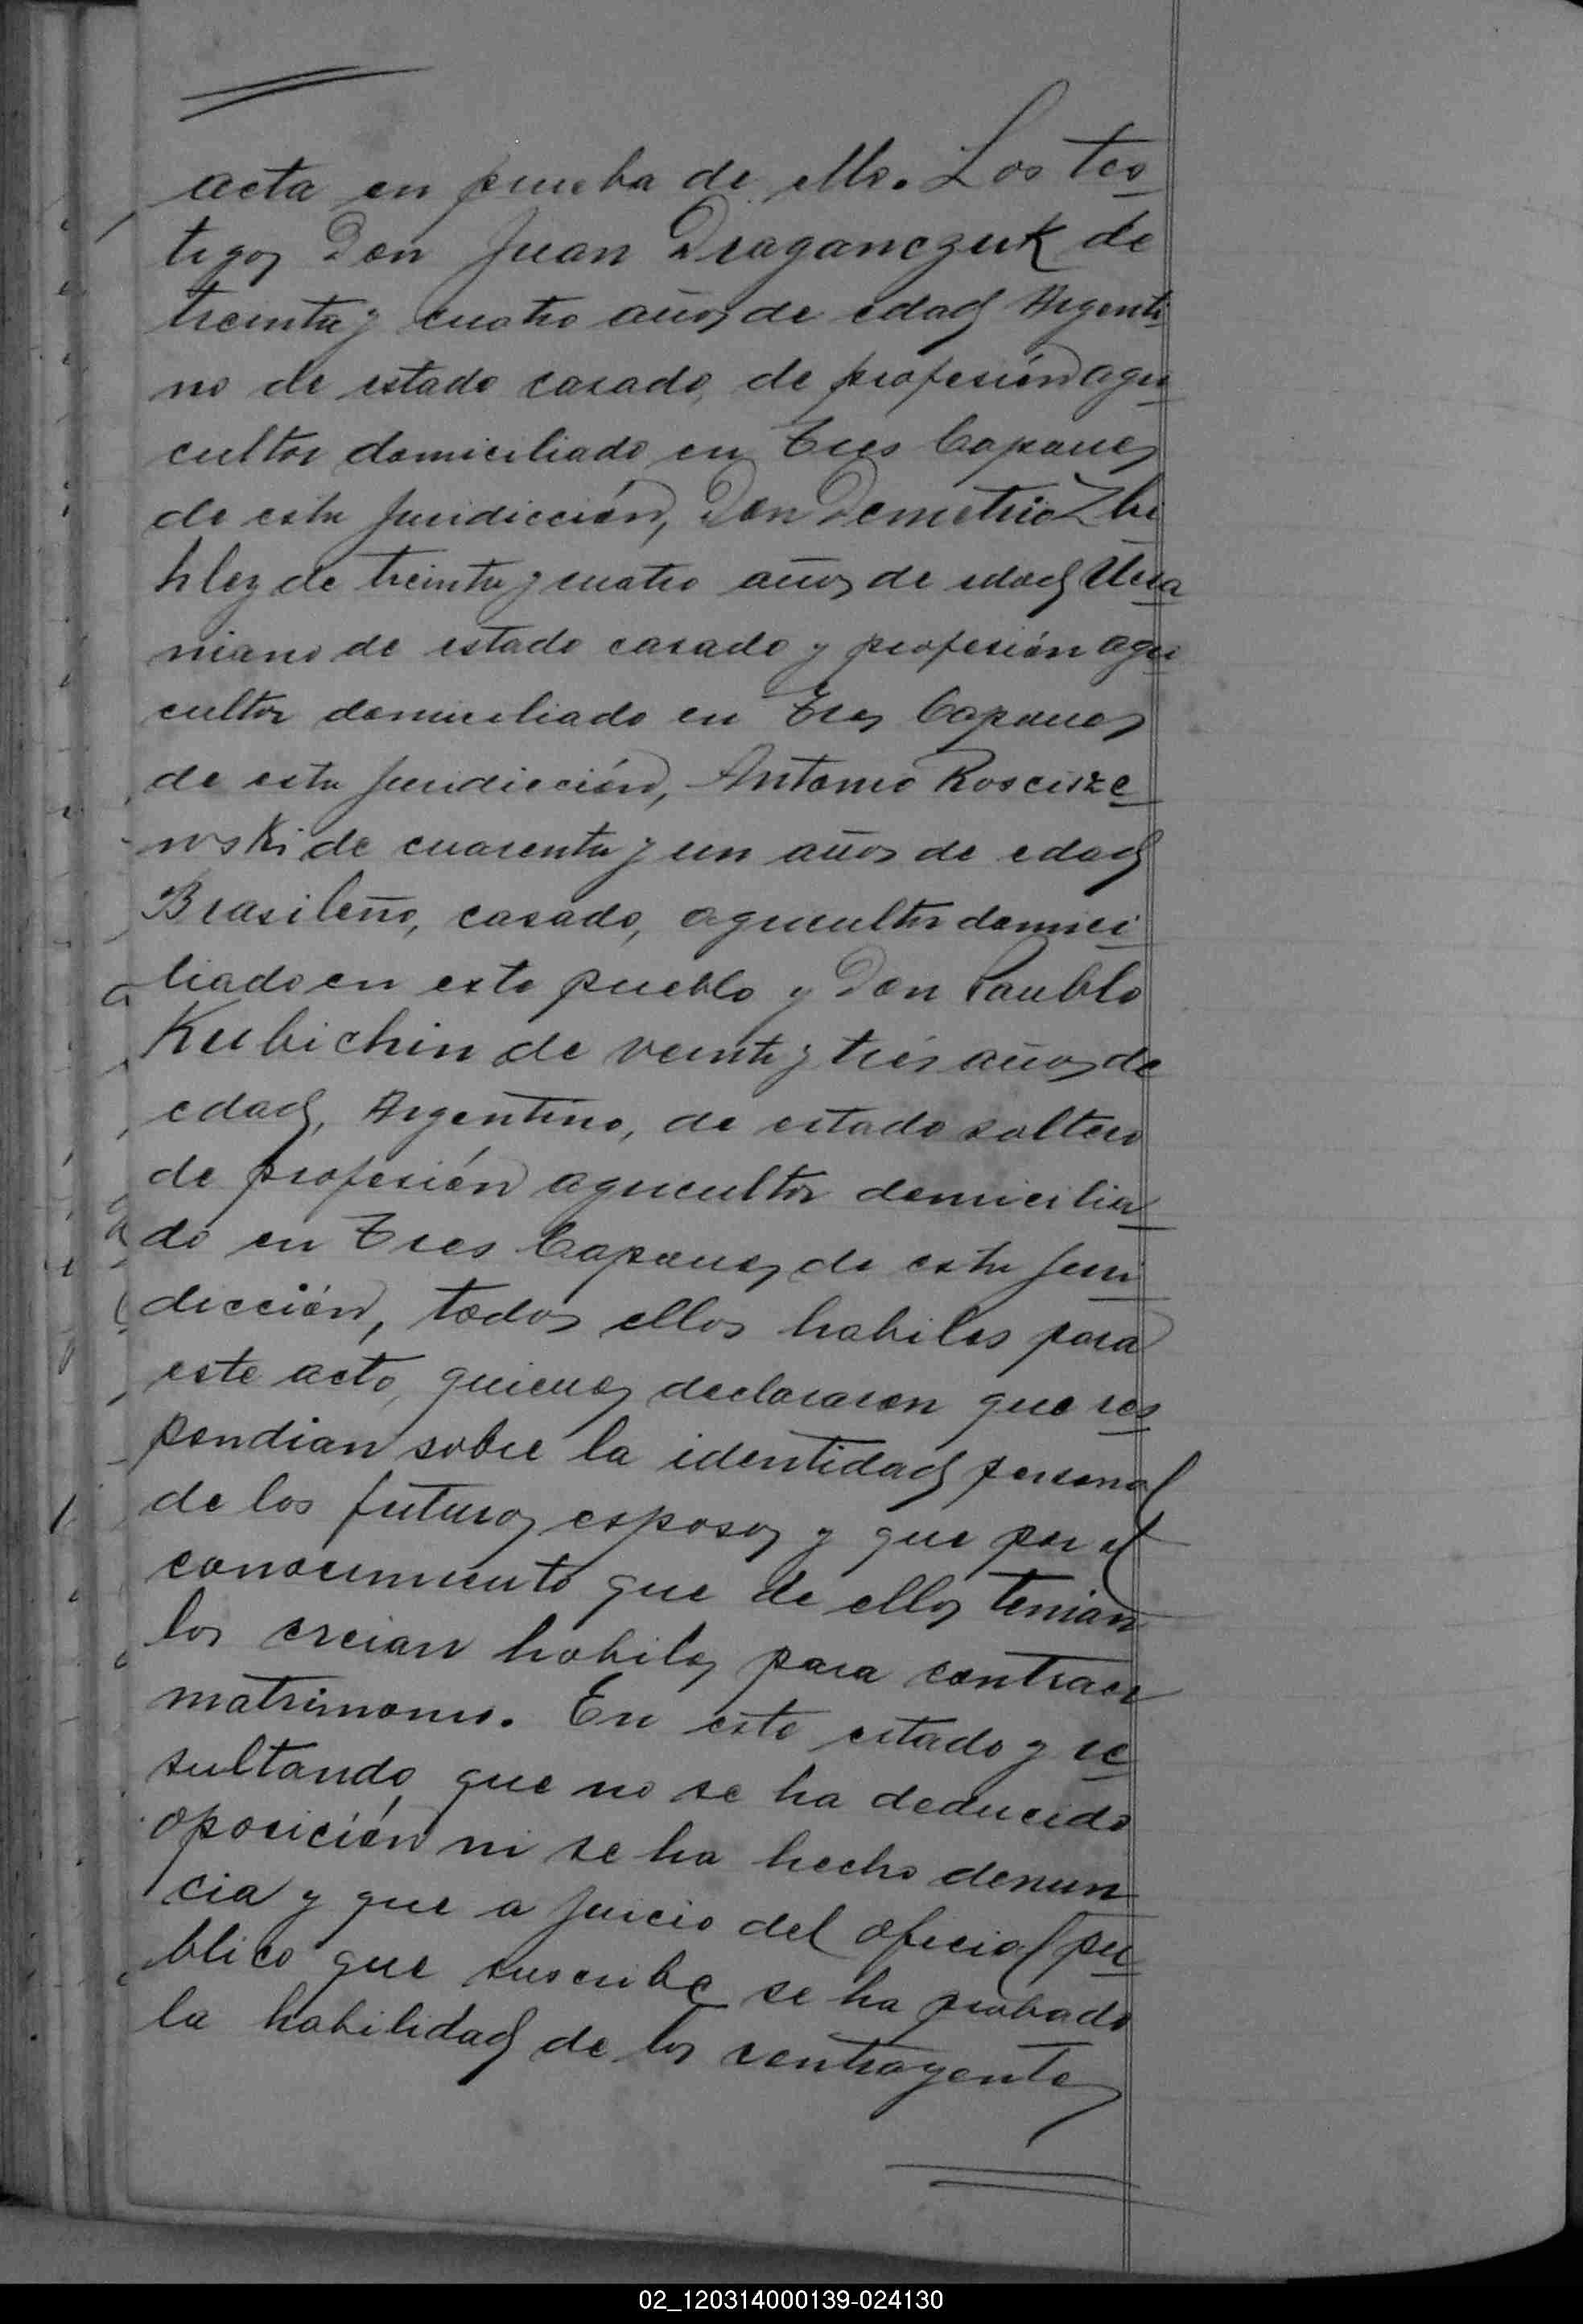 acta en prueba de ello. Los tes
tigos Don Juan Draganczuk de
treinta y cuatro años de edad Argenti
no de estado casado, de profesión agri
cultor domiciliado en Tres Capones
de esta Juridicción, Don Demetrio Zhi
hley de treinta y cuatro años de edad Ucra
niano de estado casado y profesión agri
cultor domiciliado en Tres Capones
de esta Juridicción, Antonio Roscisze
wski de cuarenta y un años de edad
Brasileño, casado, agricultor domici
liado en este pueblo y Don Paublo
Kubichin de veinte y tres años de
edad, Argentino, de estado soltero
de profesión agricultor domicilia
do en Tres Capones de esta Juri
dicción, todos ellos habiles para
este acto, quienes declararon que res
pondian sobre la identidad personal
de los futuros esposos y que por el
conocimiento que de ellos tenian
los creian habiles para contraer
matrimonio. En este estado y re
sultando que no se ha deducido
oposición ni se ha hecho denun
cia y que a juicio del oficial pu
blico que suscribe se ha probado
la habilidad de los contrayentes
02_120314000139-024130